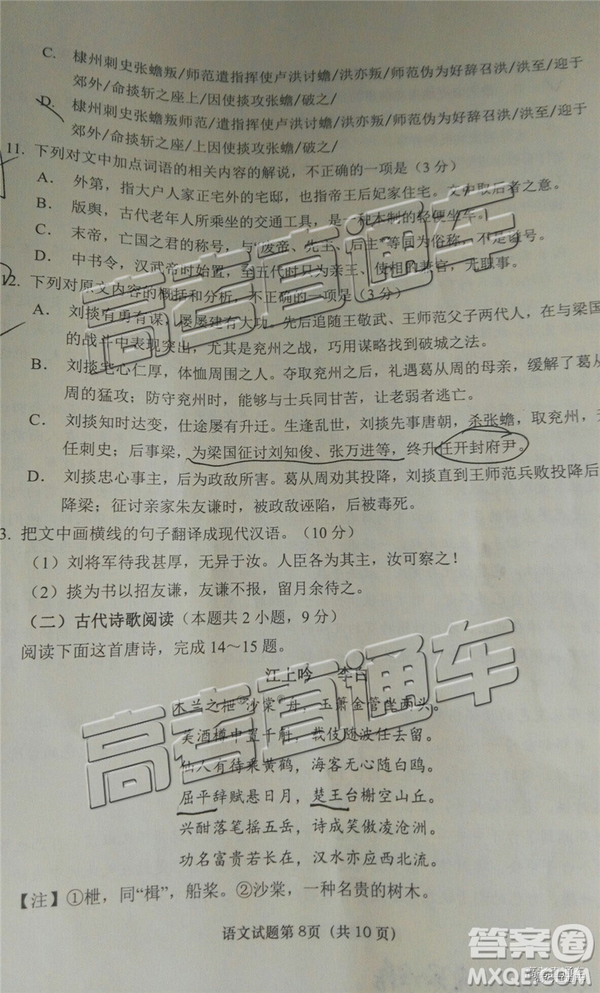 C. 棣州刺史张蟾叛/师范遣指挥使卢洪讨蟾/洪亦叛/师范伪为好辞召洪/洪至/迎于
郊外/命掞斩之座上/因使掞攻张蟾/破之/
D. 棣州刺史张蟾叛师范/遣指挥使卢洪讨蟾/洪亦叛/师范伪为好辞召洪/洪至/迎于
郊外/命掞斩之座上/因使掞攻张蟾/破之/
11. 下列对文中加点词语的相关内容的解说，不正确的一项是(3分)
A. 外第，指大户人家正宅外的宅邸，也指帝王后妃家住宅。文中取后者之意。
B. 版舆，古代老年人所乘坐的交通工具，是一种木制的轻便坐车。
C. 末帝，亡国之君的称号，与“废帝、先王、后主”等同为俗称，不是谥号。
D. 中书令，汉武帝时始置，至五代时只为亲王、使相的兼官，无实职。
12. 下列对原文内容的概括和分析，不正确的一项是(3分)
A. 刘掞有勇有谋，屡屡建有大功。先后追随王敬武、王师范父子两代人，在与梁国
的战斗中表现突出，尤其是克兖州之战，巧施计谋来找到破城之法。
B. 刘掞忠心仁厚，体恤周围之人。夺取兖州之后，很善待葛从周的母亲，缓解了葛从
周的猛攻；防守兖州时，能够与士兵同甘苦，让老弱者逃亡。
C. 刘掞知时达变，仕途屡有升迁。生逢乱世，刘掞先事唐朝，杀张蟾，取兖州，
任刺史；后事梁，为梁国征讨刘知俊、张万进等，终升任开封府尹。
D. 刘掞忠心事主，后为政敌所害。葛从周劝其投降，刘掞直到王师范兵败投降后
降梁；征讨亲家朱友谦时，被政敌诬陷，后被毒死。
3. 把文中画横线的句子翻译成现代汉语。(10分)
(1) 刘将军待我甚厚，无异于汝。人臣各为其主，汝可察之！
(2) 掞为书以招友谦，友谦不报，留月余待之。
(二) 古代诗歌阅读（本题共2小题，9分）
阅读下面这首唐诗，完成14～15题。
江上吟 李白
木兰之枻①沙棠②舟，玉箫金管坐两头。
美酒樽中置千斛，载妓随波任去留。
仙人有待乘黄鹤，海客无心随白鸥。
屈平辞赋悬日月，楚王台榭空山丘。
兴酣落笔摇五岳，诗成笑傲凌沧洲。
功名富贵若长在，汉水亦应西北流。
【注】①枻，同“楫”，船桨。②沙棠，一种名贵的树木。
语文试题第8页（共10页）
高考直通车
高考直通车
答案卷
MXQE.COM